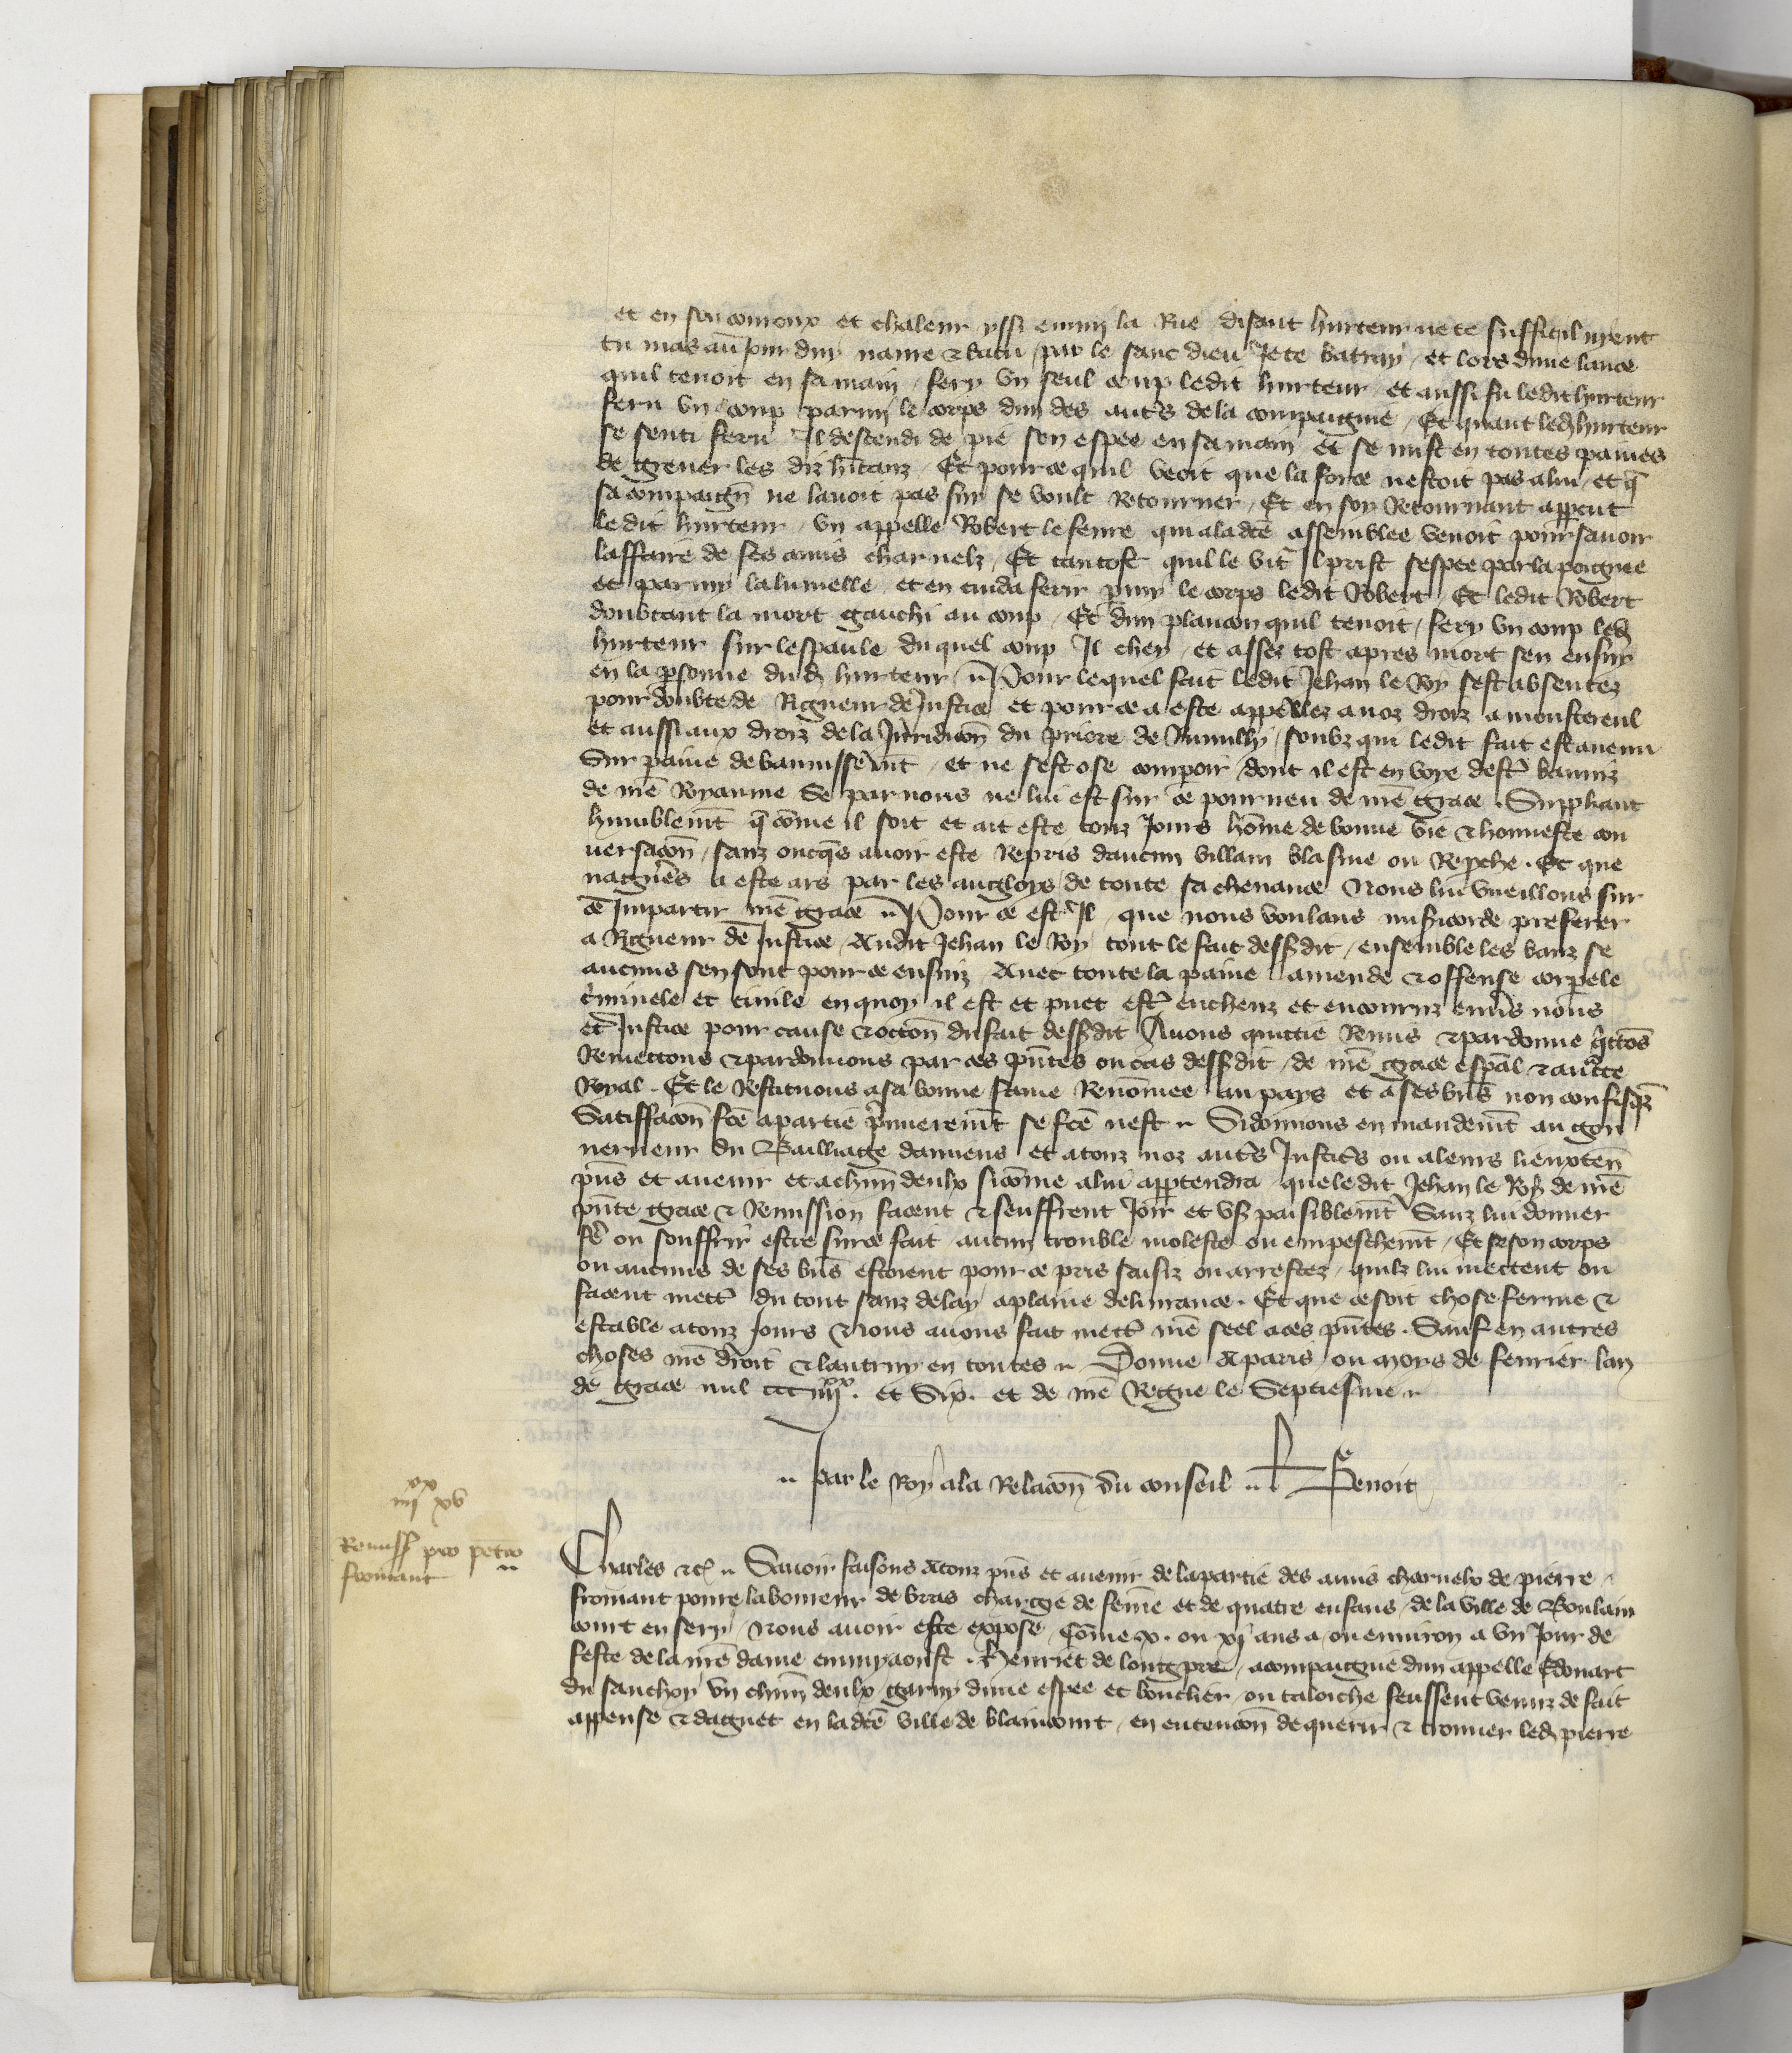 et en son couroux et chaleur yssi emmy la Rue disant hurteur ne te suffit il mient
tu mas au jour duy navre & batu / par le sanc dieu Je te batray / et lors dune lance
quil tenoit en sa main / fery un seul coup ledit hurteur / et aussi fu ledit hurteur
feru un coup parmi le corps dun des autrs de la compaignie / Et quant led hurteur
se senti feru Il descendi de pie son espee en sa main et se mist en toutes paines
de grever les diz hītanz / Et pour ce quil veoit que la force nestoit pas a lui / et q̄
sa compaign̄ ne lavoit pas suy se voult Retourner / Et en soy Retournant apparcut
ledit hurteur / un appelle Robert le fevre qui a la dce assemblee venoit pour savoir
laffaire de ses amis charnelz / Et tantost quil le vit Il prist sespee par la poignie
et parmy lalumelle / et en cuida ferir pmy le corps ledit Robert / Et ledit Robert
doubtant la mort gauchi au coup / Et dun plancon quil tenoit / fery un coup led
hurteur sur lespaule du quel coup Il chey / et assez tost apres mort sen ensuy
en la psonne dud hurteur // Pour lequel fait ledit Jehan le Roy sest absentez
pour doubte de Rigueur de Justice et pour ce a este appellez a noz droiz a monstereul
et aussi aux droiz de la Juridicōn du priore de Rumilly / soubz qui ledit fait est avenu
Sur paine de bannissemt / et ne sest ose compoir / dont il est en voye destr banniz
de nrē Royaume Se par nous ne lui est sur ce pourveu de nrē grace . Suppliant
humblemt q̄ cōme il soit et ait este touz Jours hōme de bonne vie & honneste con
versacōn / sanz oncqs avoir este Repris daucun villain blasme ou Reproche . Et que
nagueres a este ars par les angloys / de toute sa chevance Nous lui vueillons sur
ce Impartir nrē grace // Pour ce est Il / que nous voulans misicorde preferer
a Rigueur de Justice / Audit Jehan le Roy tout le fait dessusdit / ensemble les banz se
aucuns sen sont pour ce ensuiz Avec toute la paine / amende & offense corpele
criminele et civile en quoy il est et puet estr encheuz et encouruz envrs nous
et Justice pour cause & occōn du fait dessusdit Avons quittie Remis & pardonne qttōs
Remettons & pardonnons par ces pn̄tes ou cas dessusdit / de nrē grace espāl & auctte
Royal . Et le Restituons a sa bonne fame Renōmee au pays et a ses biēs non confisqz
Satiffacōn fcē a partie prmieremt se fcē nest // Si donnons en mandemt au gou
verneur du Bailliage damiens et a touz noz autrs Justicrs ou a leurs lieuxten̄
pn̄s et avenir et a chūn deulx sicōme a lui appartendra que ledit Jehan le Roy de nrē
pn̄te grace & Remission facent & seuffrent Joir et usr paisiblemt Sanz lui donner
fe ou souffrir estre sur ce fait aucun trouble moleste ou empeschemt / Et se son corps
ou aucuns de ses biēs estoient pour ce pris saisiz ou arrestez / quilz lui mettent ou
facent mettr du tout sanz delay a plaine delivrance . Et que ce soit chose ferme &
estable a touz Jours Nous avons fait mettr nrē seel a ces pn̄tes . Sauf en autres
choses nrē droit & lautruy en toutes // Donne A paris / ou moys de fevrier lan
de grace mil ccc iiijxx . et Six . et de nrē Regne le Septiesme //
// par le Roy a la Relacōn du conseil // L Benoit
xx
iiij xv
Remiss pro petro
fromant //
Charles &c // Savoir faisons A touz pn̄s et avenir de la partie des amis charnelx de pierre
fromant povre laboureur de bras chargie de feme et de quatre enfans / de la ville de Boulain
court en sery / Nous avoir este expose / Cōme x . ou xj ans a / ou environ a un Jour de
feste de la nrē dame emmyaoust . Henriet de longpre / acompaignie dun appelle Edouart
du sauchoy un chūn deulx garny dune espee et bouclier / ou taloiche feussent venuz de fait
appense & daguet en la dcē ville de blaincourt / en entencōn de querir & trouver led pierre